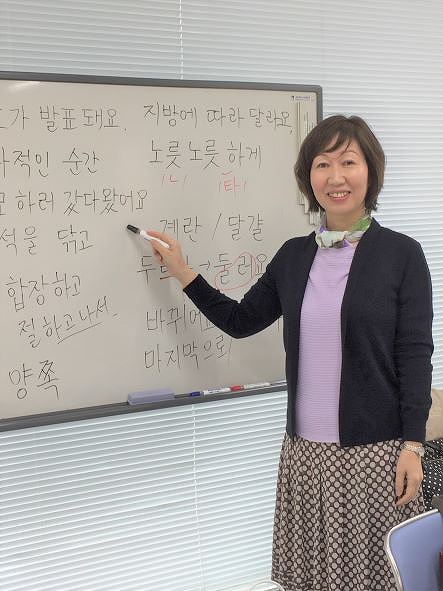 가 발표돼요.
적인 순간
하러 갔다왔어요
석을 닦고
합장하고
절하고나서.
양쪽
지방에 따라 달라요.
노릇노릇하게
[ㄴ] [타]
계란 / 달걀
→ 둘러요
바뀌어
마지막으로